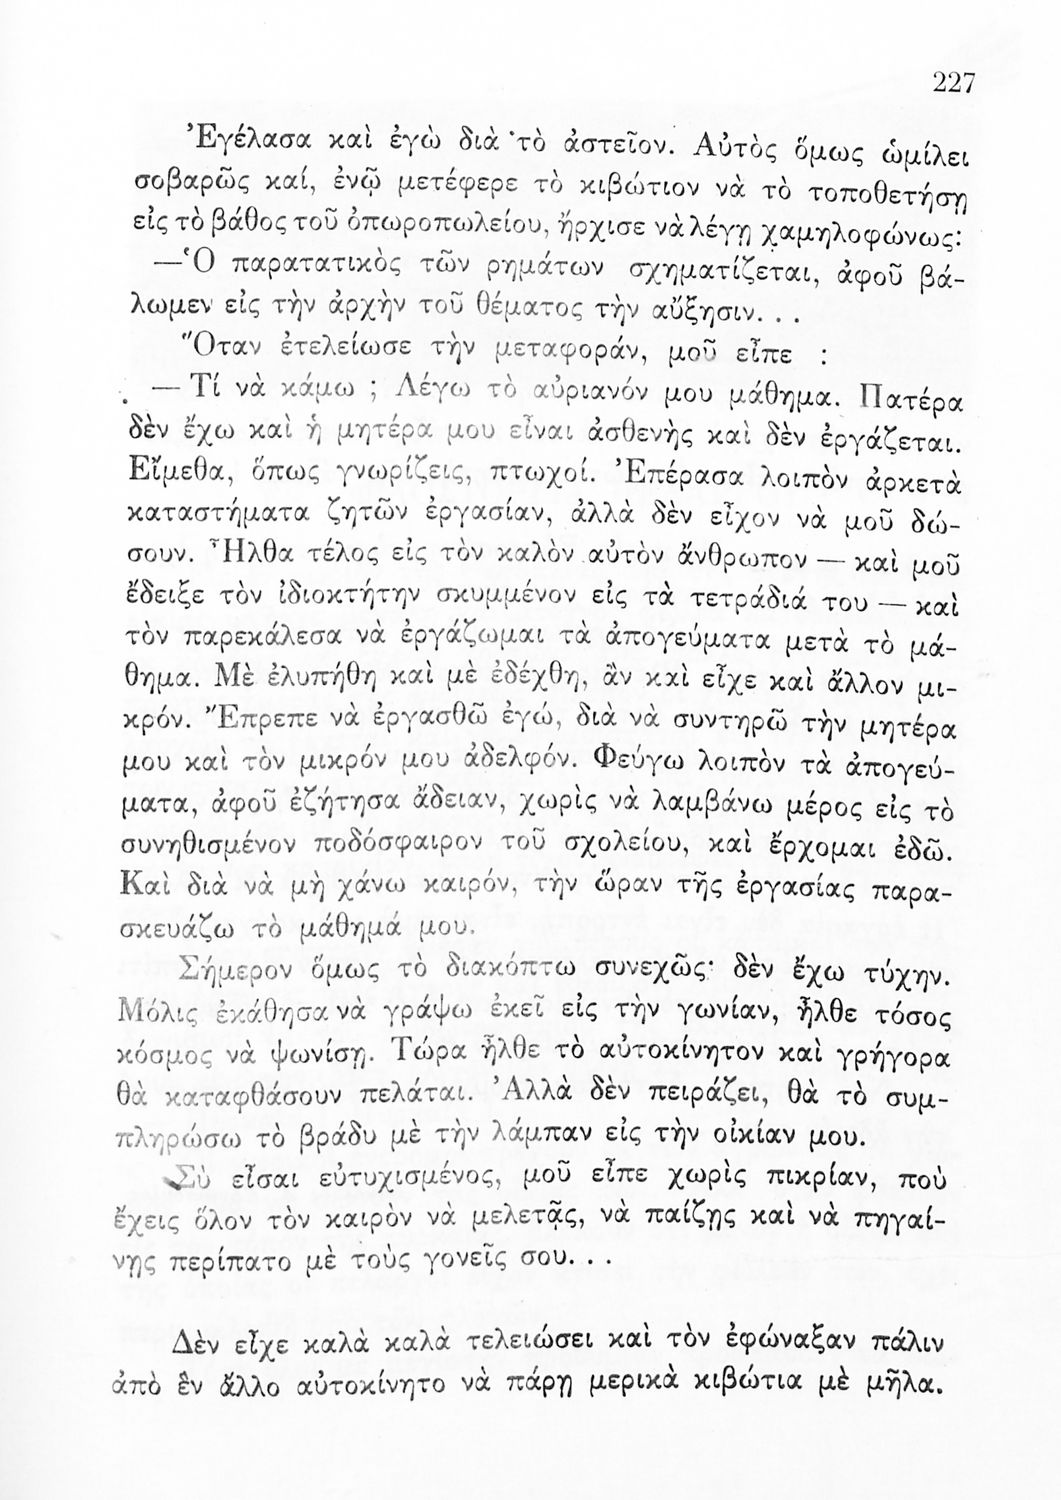 227
Ἐγέλασα καὶ ἐγὼ διὰ τὸ ἀστεῖον. Αὐτὸς ὅμως ὡμίλει
σοβαρῶς καί, ἐνῷ μετέφερε τὸ κιβώτιον νὰ τὸ τοποθετήσῃ
εἰς τὸ βάθος τοῦ ὀπωροπωλείου, ἤρχισε νὰ λέγῃ χαμηλοφώνως:
—Ὁ παρατατικὸς τῶν ρημάτων σχηματίζεται, ἀφοῦ βά-
λωμεν εἰς τὴν ἀρχὴν τοῦ θέματος τὴν αὔξησιν. . .
Ὅταν ἐτελείωσε τὴν μεταφοράν, μοῦ εἶπε :
— Τί νὰ κάμω ; Λέγω τὸ αὐριανόν μου μάθημα. Πατέρα
δὲν ἔχω καὶ ἡ μητέρα μου εἶναι ἀσθενὴς καὶ δὲν ἐργάζεται.
Εἴμεθα, ὅπως γνωρίζεις, πτωχοί. Ἐπέρασα λοιπὸν ἀρκετὰ
καταστήματα ζητῶν ἐργασίαν, ἀλλὰ δὲν εἶχον νὰ μοῦ δώ-
σουν. Ἦλθα τέλος εἰς τὸν καλὸν αὐτὸν ἄνθρωπον — καὶ μοῦ
ἔδειξε τὸν ἰδιοκτήτην σκυμμένον εἰς τὰ τετράδιά του — καὶ
τὸν παρεκάλεσα νὰ ἐργάζωμαι τὰ ἀπογεύματα μετὰ τὸ μά-
θημα. Μὲ ἐλυπήθη καὶ μὲ ἐδέχθη, ἂν καὶ εἶχε καὶ ἄλλον μι-
κρόν. Ἔπρεπε νὰ ἐργασθῶ ἐγώ, διὰ νὰ συντηρῶ τὴν μητέρα
μου καὶ τὸν μικρόν μου ἀδελφόν. Φεύγω λοιπὸν τὰ ἀπογεύ-
ματα, ἀφοῦ ἐζήτησα ἄδειαν, χωρὶς νὰ λαμβάνω μέρος εἰς τὸ
συνηθισμένον ποδόσφαιρον τοῦ σχολείου, καὶ ἔρχομαι ἐδῶ.
Καὶ διὰ νὰ μὴ χάνω καιρόν, τὴν ὥραν τῆς ἐργασίας παρα-
σκευάζω τὸ μάθημά μου.
Σήμερον ὅμως τὸ διακόπτω συνεχῶς· δὲν ἔχω τύχην.
Μόλις ἐκάθησα νὰ γράψω ἐκεῖ εἰς τὴν γωνίαν, ἦλθε τόσος
κόσμος νὰ ψωνίσῃ. Τώρα ἦλθε τὸ αὐτοκίνητον καὶ γρήγορα
θὰ καταφθάσουν πελάται. Ἀλλὰ δὲν πειράζει, θὰ τὸ συμ-
πληρώσω τὸ βράδυ μὲ τὴν λάμπαν εἰς τὴν οἰκίαν μου.
Σὺ εἶσαι εὐτυχισμένος, μοῦ εἶπε χωρὶς πικρίαν, ποὺ
ἔχεις ὅλον τὸν καιρὸν νὰ μελετᾷς, νὰ παίζῃς καὶ νὰ πηγαί-
νῃς περίπατο μὲ τοὺς γονεῖς σου. . .
Δὲν εἶχε καλὰ καλὰ τελειώσει καὶ τὸν ἐφώναξαν πάλιν
ἀπὸ ἓν ἄλλο αὐτοκίνητο νὰ πάρῃ μερικὰ κιβώτια μὲ μῆλα.